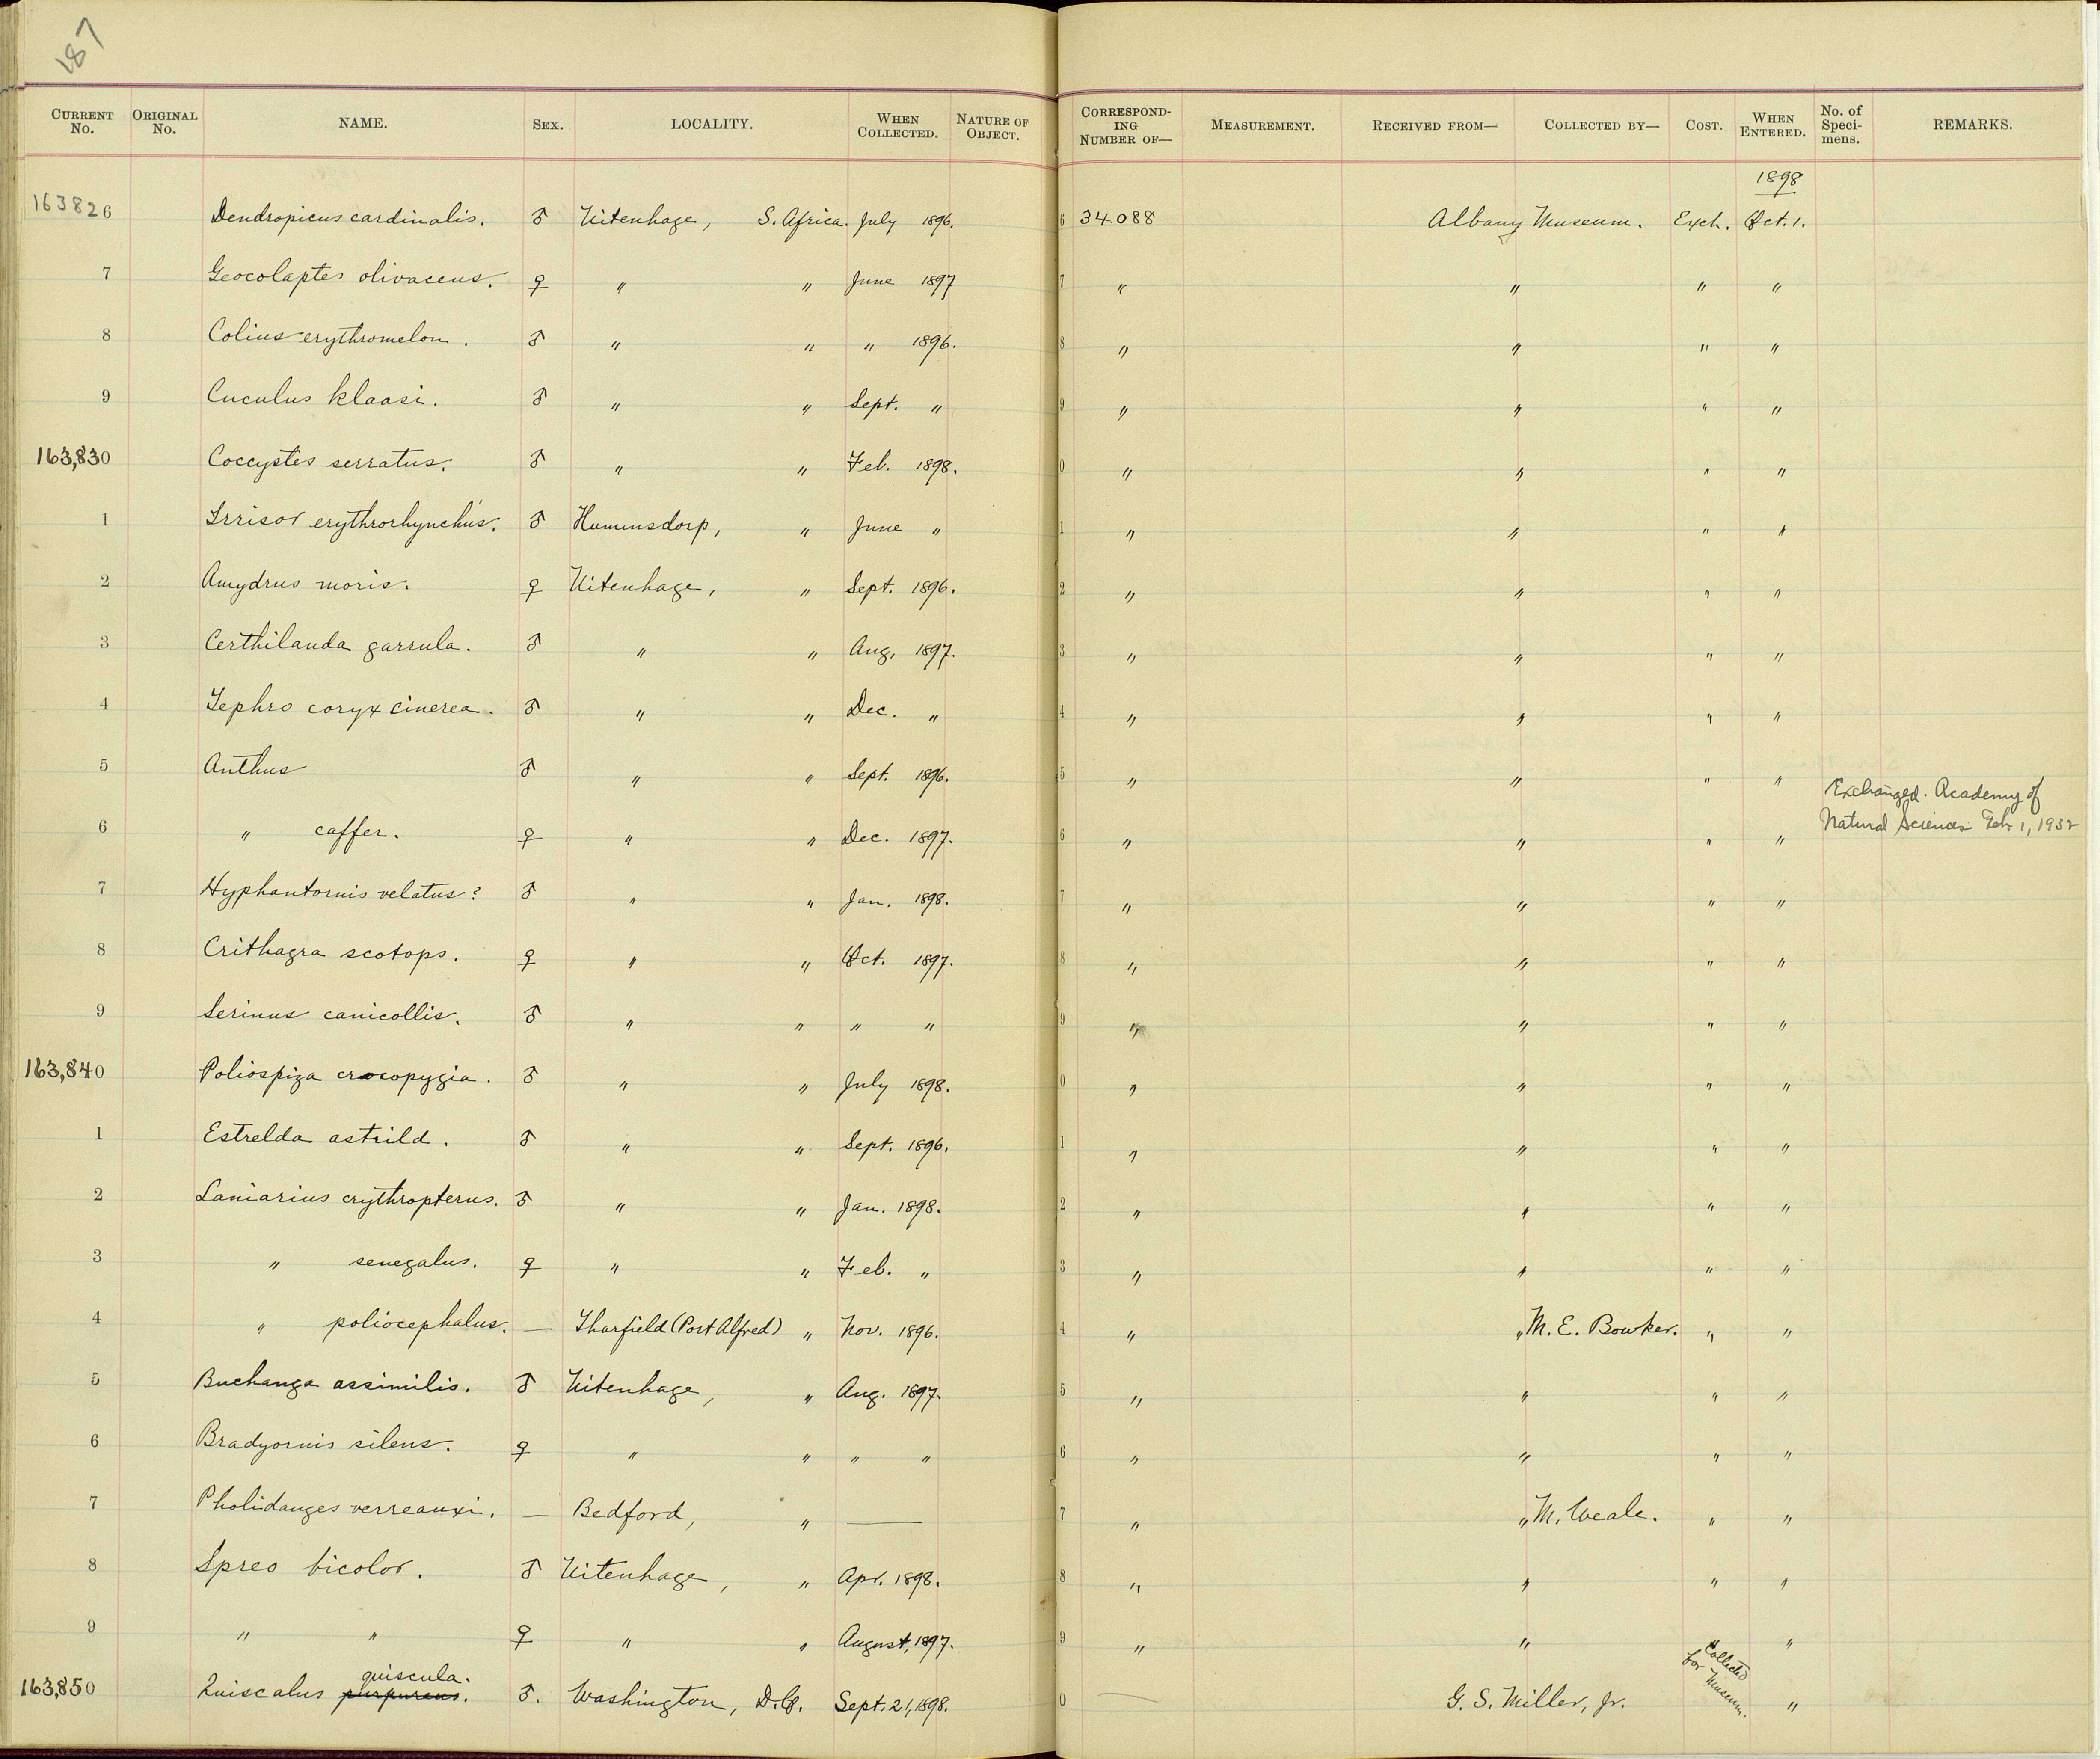 187
CURRENT No. ORIGINAL No. NAME. SEX. LOCALITY. WHEN COLLECTED. NATURE OF OBJECT. CORRESPONDING NUMBER OF— MEASUREMENT. RECEIVED FROM— COLLECTED BY— COST. WHEN ENTERED. No. of Specimens. REMARKS.
1898
163826 Dendropicus cardinalis. ♂ Uitenhage, S. Africa. July 1896. 6 34088 Albany Museum. Exch. Oct. 1.
7 Geocolaptes olivaceus. ♀ " " June 1897 7 " " " "
8 Colius erythromelon. ♂ " " " 1896. 8 " " " "
9 Cuculus klaasi. ♂ " " Sept. " 9 " " " "
163,830 Coccystes serratus. ♂ " " Feb. 1898. 0 " " " "
1 Irrisor erythrorhynchus. ♂ Humansdorp, " June " 1 " " " "
2 Amydrus moris. ♀ Uitenhage, " Sept. 1896. 2 " " " "
3 Certhilauda garrula. ♂ " " Aug. 1897. 3 " " " "
4 Tephro coryx cinerea. ♂ " " Dec. " 4 " " " "
5 Anthus ♂ " " Sept. 1896. 5 " " " "
Exchanged. Academy of
6 " caffer. ♀ " " Dec. 1897. 6 " " " " Natural Sciences Feb 1, 1932
7 Hyphantornis velatus? ♂ " " Jan. 1898. 7 " " " "
8 Crithagra scotops. ♀ " " Oct. 1897. 8 " " " "
9 Serinus canicollis. ♂ " " " " 9 " " " "
163,840 Poliospiza crocopygia. ♂ " " July 1898. 0 " " " "
1 Estrelda astrild. ♂ " " Sept. 1896. 1 " " " "
2 Laniarius erythropterus. ♂ " " Jan. 1898. 2 " " " "
3 " senegalus. ♀ " " Feb. " 3 " " " "
4 " poliocephalus. — Tharfield (Port Alfred) " Nov. 1896. 4 " " M. E. Bowker. " "
5 Buchanga assimilis. ♂ Uitenhage, " Aug. 1897. 5 " " " "
6 Bradyornis silens. ♀ " " " " 6 " " " "
7 Pholidauges verreauxi. — Bedford, " — 7 " " M. Weale. " "
8 Spreo bicolor. ♂ Uitenhage, " Apr. 1898. 8 " " " "
9 " " ♀ " " August, 1897. 9 " " " "
quiscula.
163,850 Quiscalus purpureus. ♂. Washington, D.C. Sept. 21, 1898. 0 — G. S. Miller, Jr. Collected for Museum. "